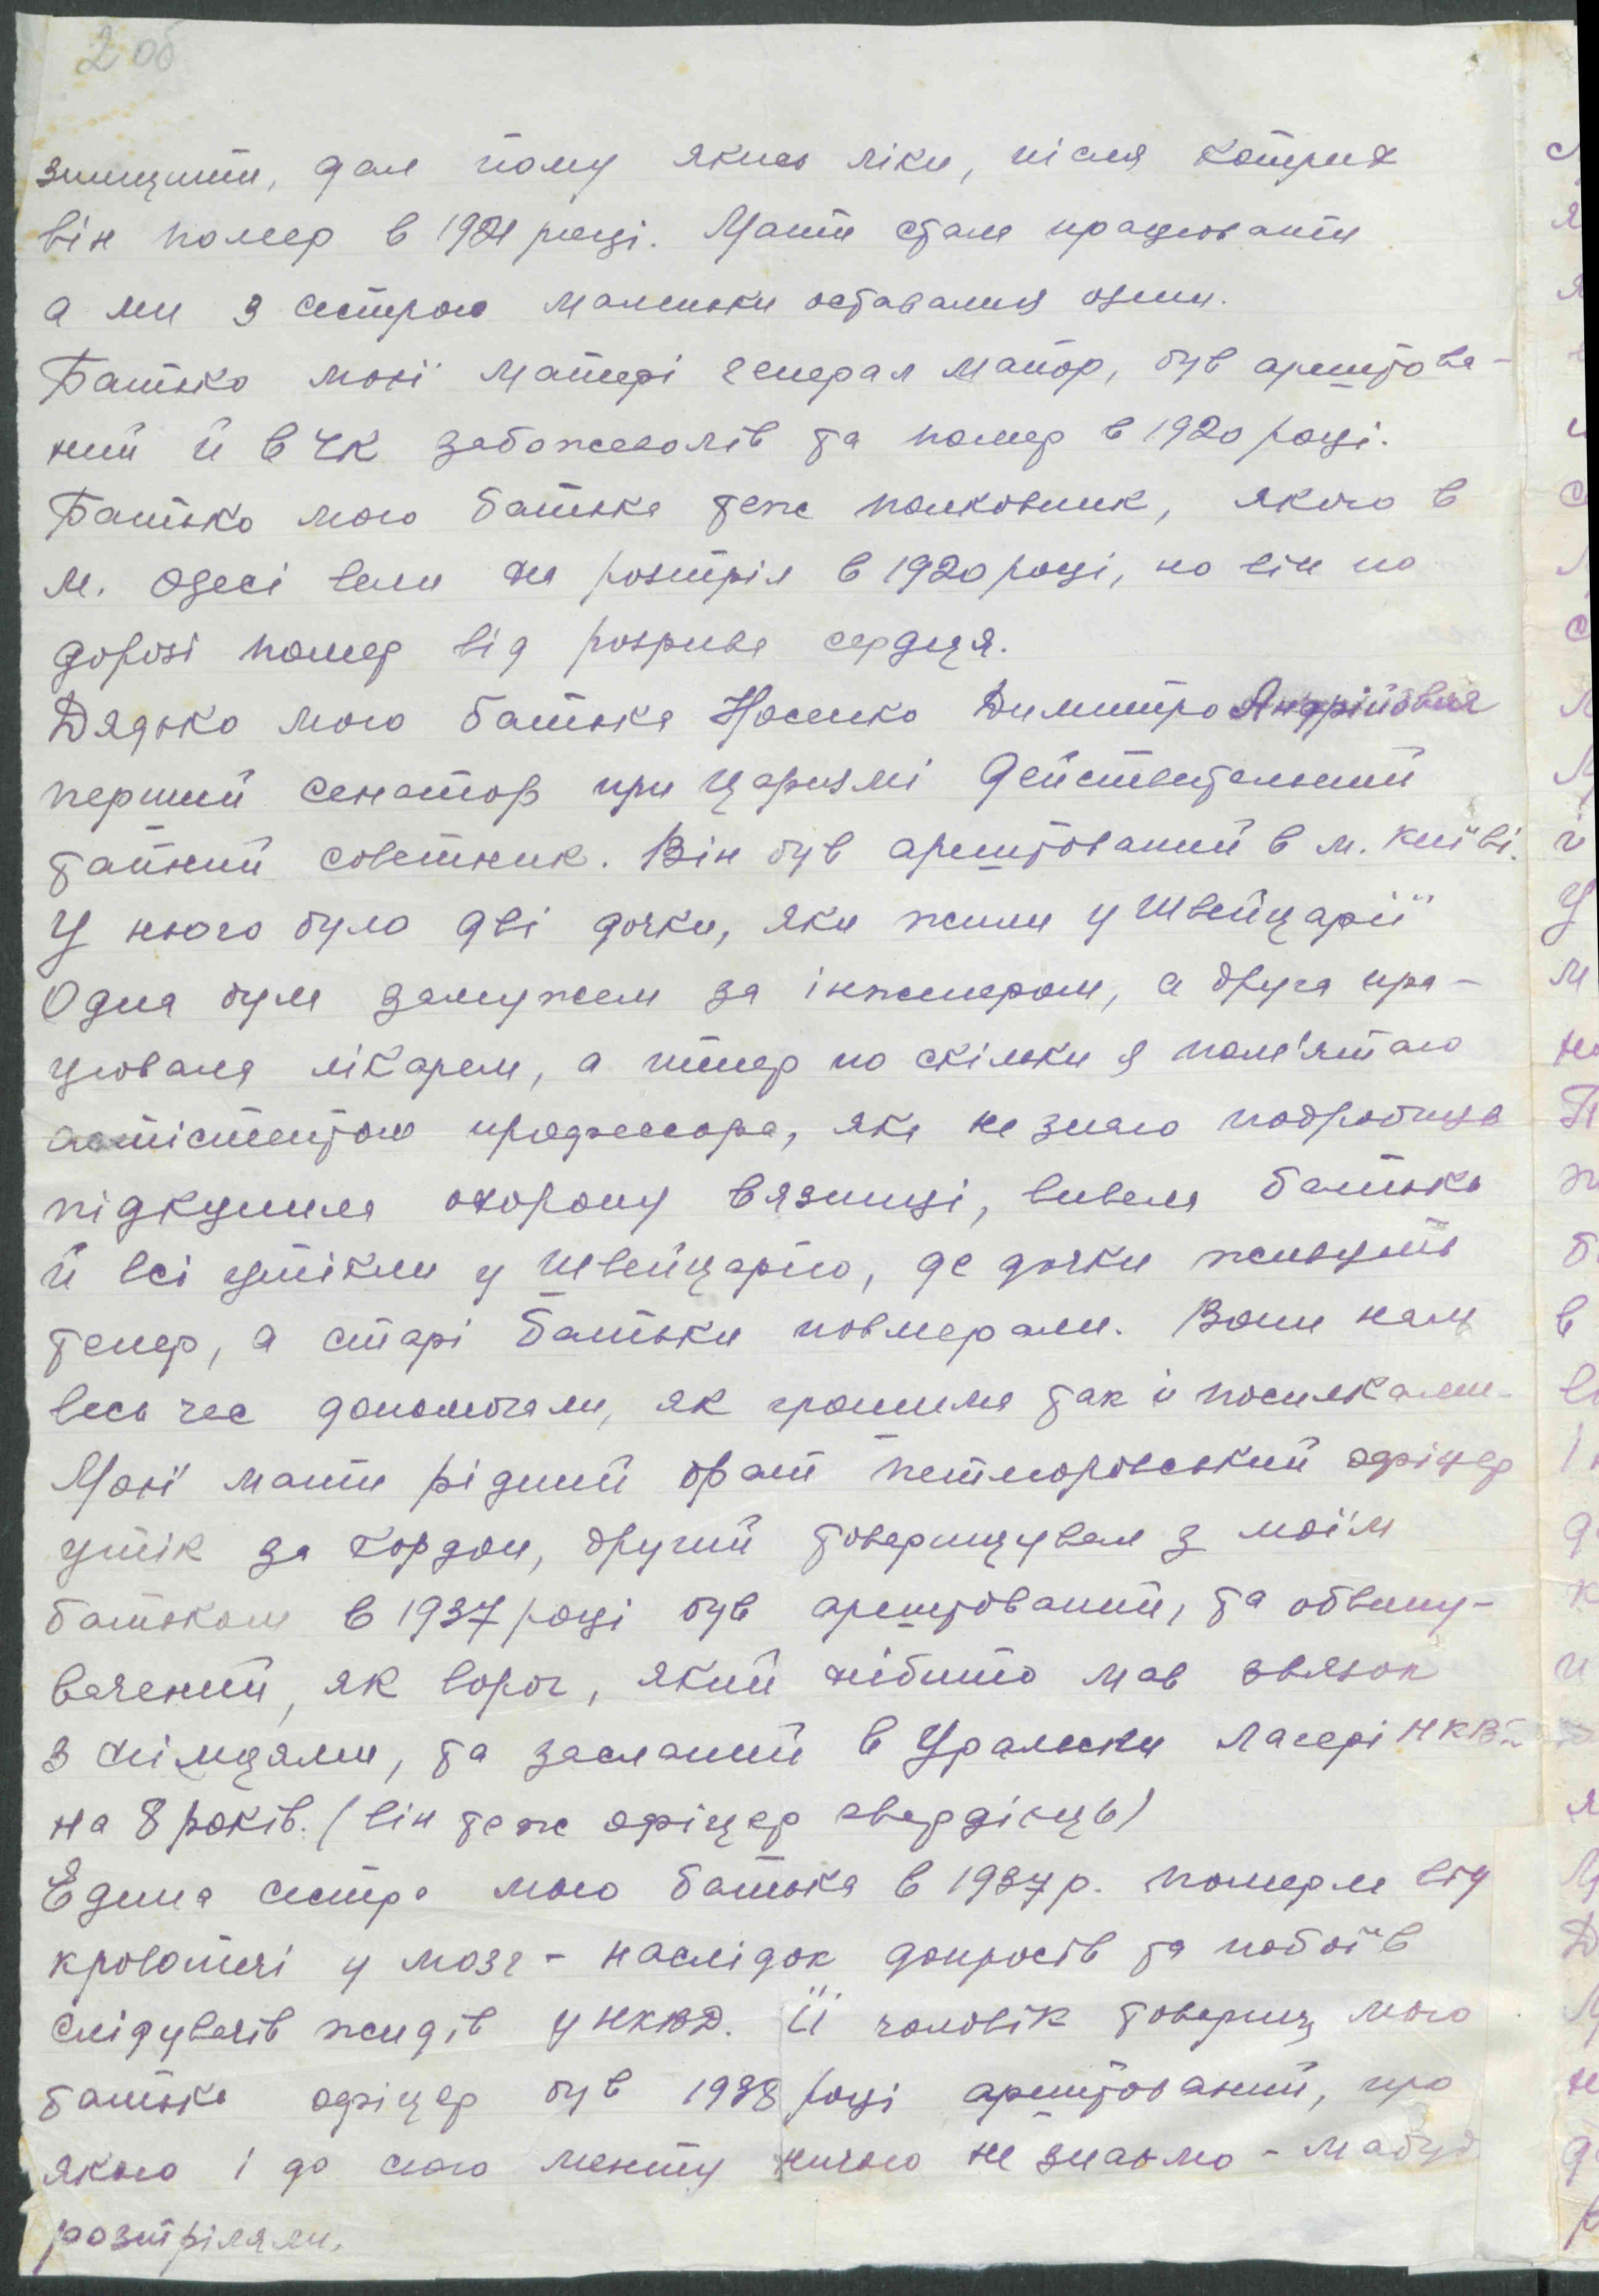 2 об
знищити, дал йому якись ліки, після котрих
він помер в 1921 році. Мати стала працювати
а ми з сестрою маленьки оставались одни.
Батько моєї матері генерал майор, був арештова-
ний й в ЧК забожеволів та помер в 1920 році.
Батько мого батька теж полковник, якого в
м. Одесі вели на розтріл в 1920 році, но він по
дорозі помер від розрива сердця.
Дядько мого батька Носенко Димитро Андрійович
перший сенатор при царизмі действительний
тайний советник. Він був арештований в м. Київі.
У нього було дві дочки, яки жили у Швейцарії
Одна була замужем за інженером, а друга пра-
цювала лікарем, а тепер по скільки я пам'ятаю
асистентою професора, яка не знаю подробиць
підкупила охорону вязниці, вивела батька
й всі утікли у Швейцарію, де дочки живуть
тепер, а старі батьки повмерали. Вони нам
весь час допомогали, як грошима так і посилками.
Моєї мати рідний брат петлюровський офіцер
утік за кордон, другий товаришувал з моїм
батьком в 1937 році був арештований, та обвину-
вачений, як ворог, який нібито мав звязок
з німцями, та засланий в Уральски лагері НКВД
на 8 років. (він теж офіцер гвардієць)
Едина сестра мого батька в 1937 р. померла від
кровотечі у мозг - наслідок допросів та побоїв
слідувачів жидів у НКВД. Її чоловік товариш мого
батька офіцер був 1938 році арештований, про
якого і до сього менту ничого не знаємо - мабуд
розтріляли.